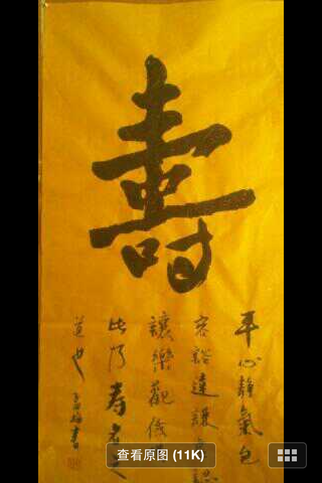 壽
平心靜氣包
容豁達謙
讓樂觀
此乃壽者之
道也
書
查看原图 (11K)